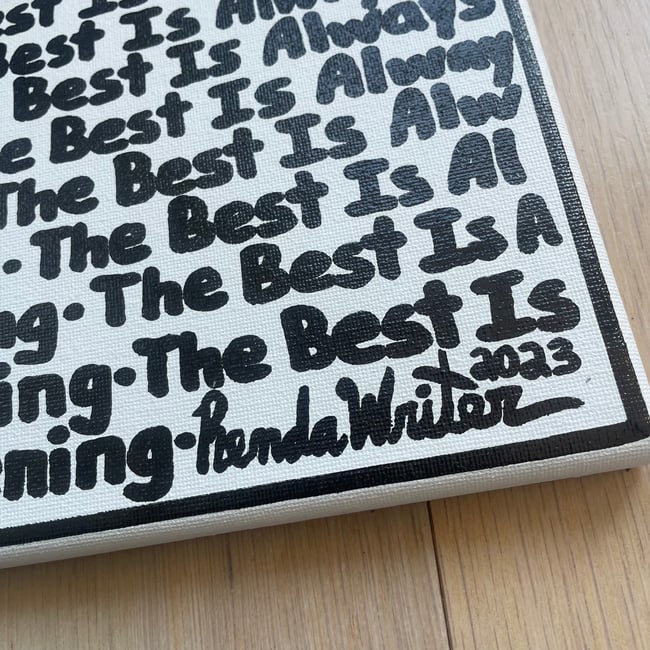 est Is Alwa
Best Is Always
Best Is Always
e Best Is Alway
The Best Is Alw
· The Best Is Al
ng· The Best Is A
ing·The Best Is
2023
ening·RendaWriter